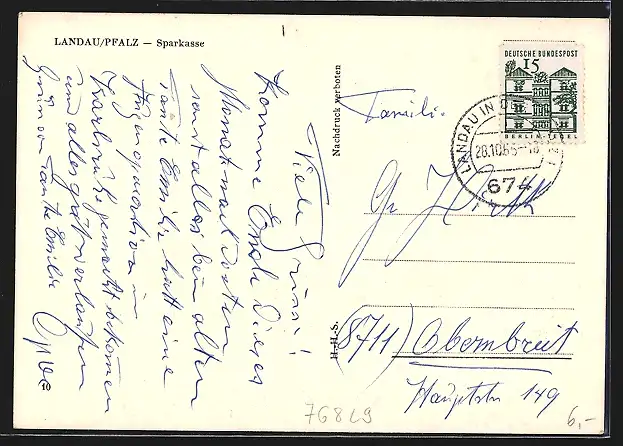 LANDAU/PFALZ — Sparkasse
Viele Grüsse!
Komme Ende dieses
Monats mal dorten
sonst alles beim alten
Tante Emilie hatt eine
Augenoperation in
Karlsruhe gemacht bekommen
und alles gut verlaufen
Grüsse von Tante Emilie
10
Nachdruck verboten
H.H.S.
DEUTSCHE BUNDESPOST
15
BERLIN-TEGEL
LANDAU IN D
28.10.65-18
674
Familie
Gg
(8711) Obernbreit
Hauptstr 149
76829
6,-